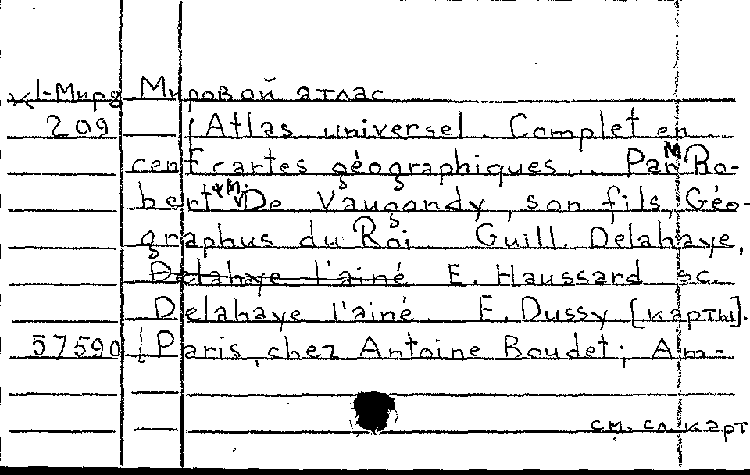 К1-Мирд Мировой атлас
209 Atlas universel. Complet en
cent cartes géographiques... Par M Ro-
bert et M. De Vaugondy, son fils, Géo-
graphus du Roi Guill. Delahaye,
Delahaye l'ainé E. Haussard sc.
Delahaye l'ainé. E. Dussy [карты].
57590 Paris, chez Antoine Boudet; Am-
см. сл. карт